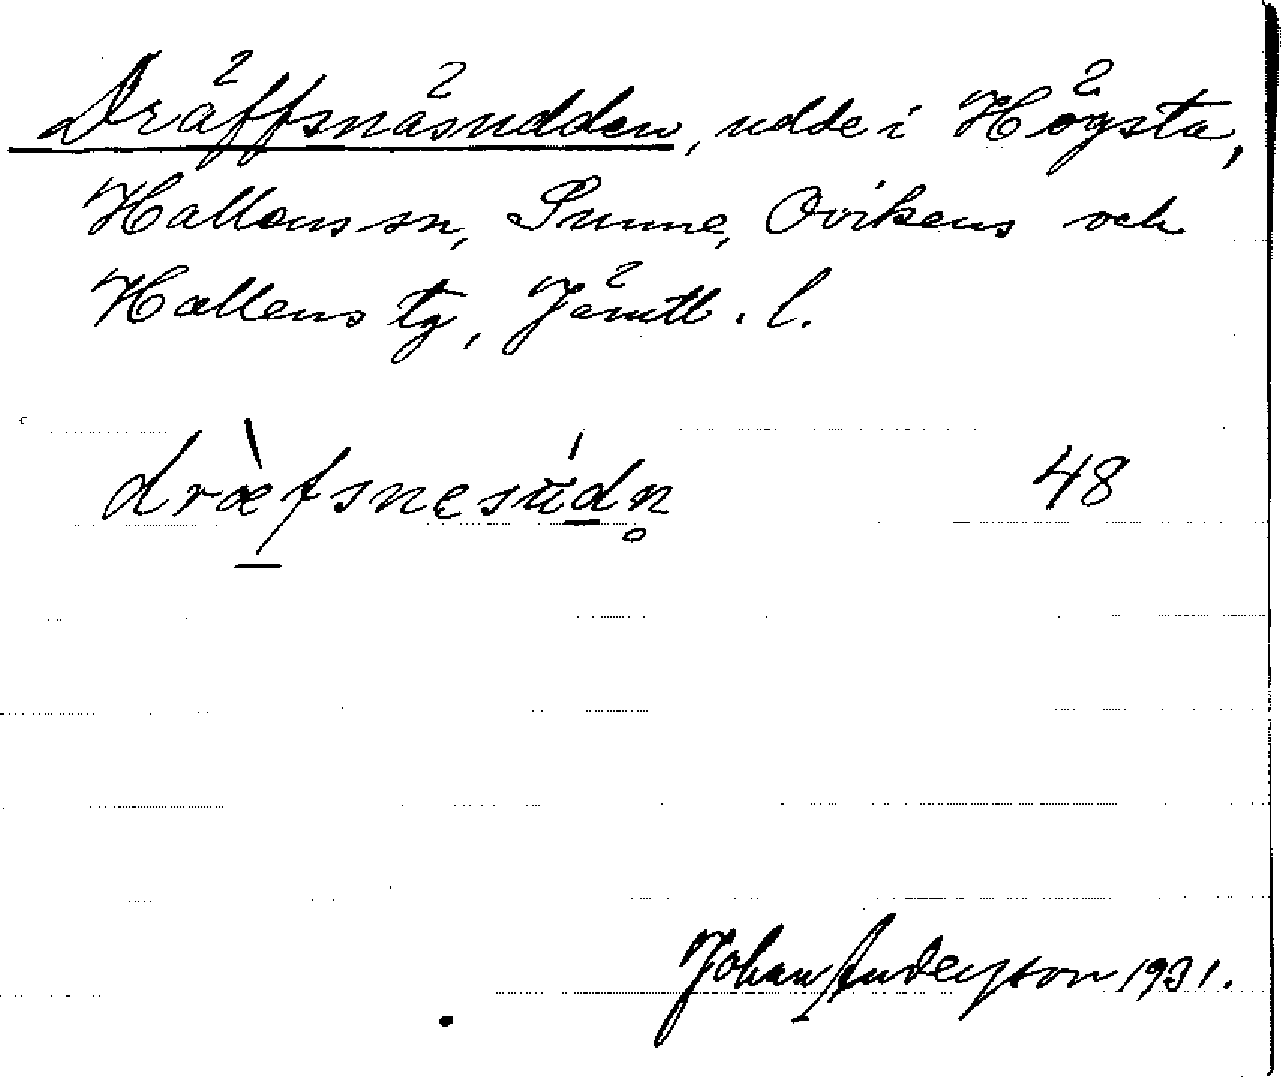 Dräffsnäsudden, udde i Högsta,
Hallens sn, Sunne, Ovikens och
Hallens tg, Jämtl. l.
dræ̀fsnesúdn̥ 48
Johan Anderson 1931.